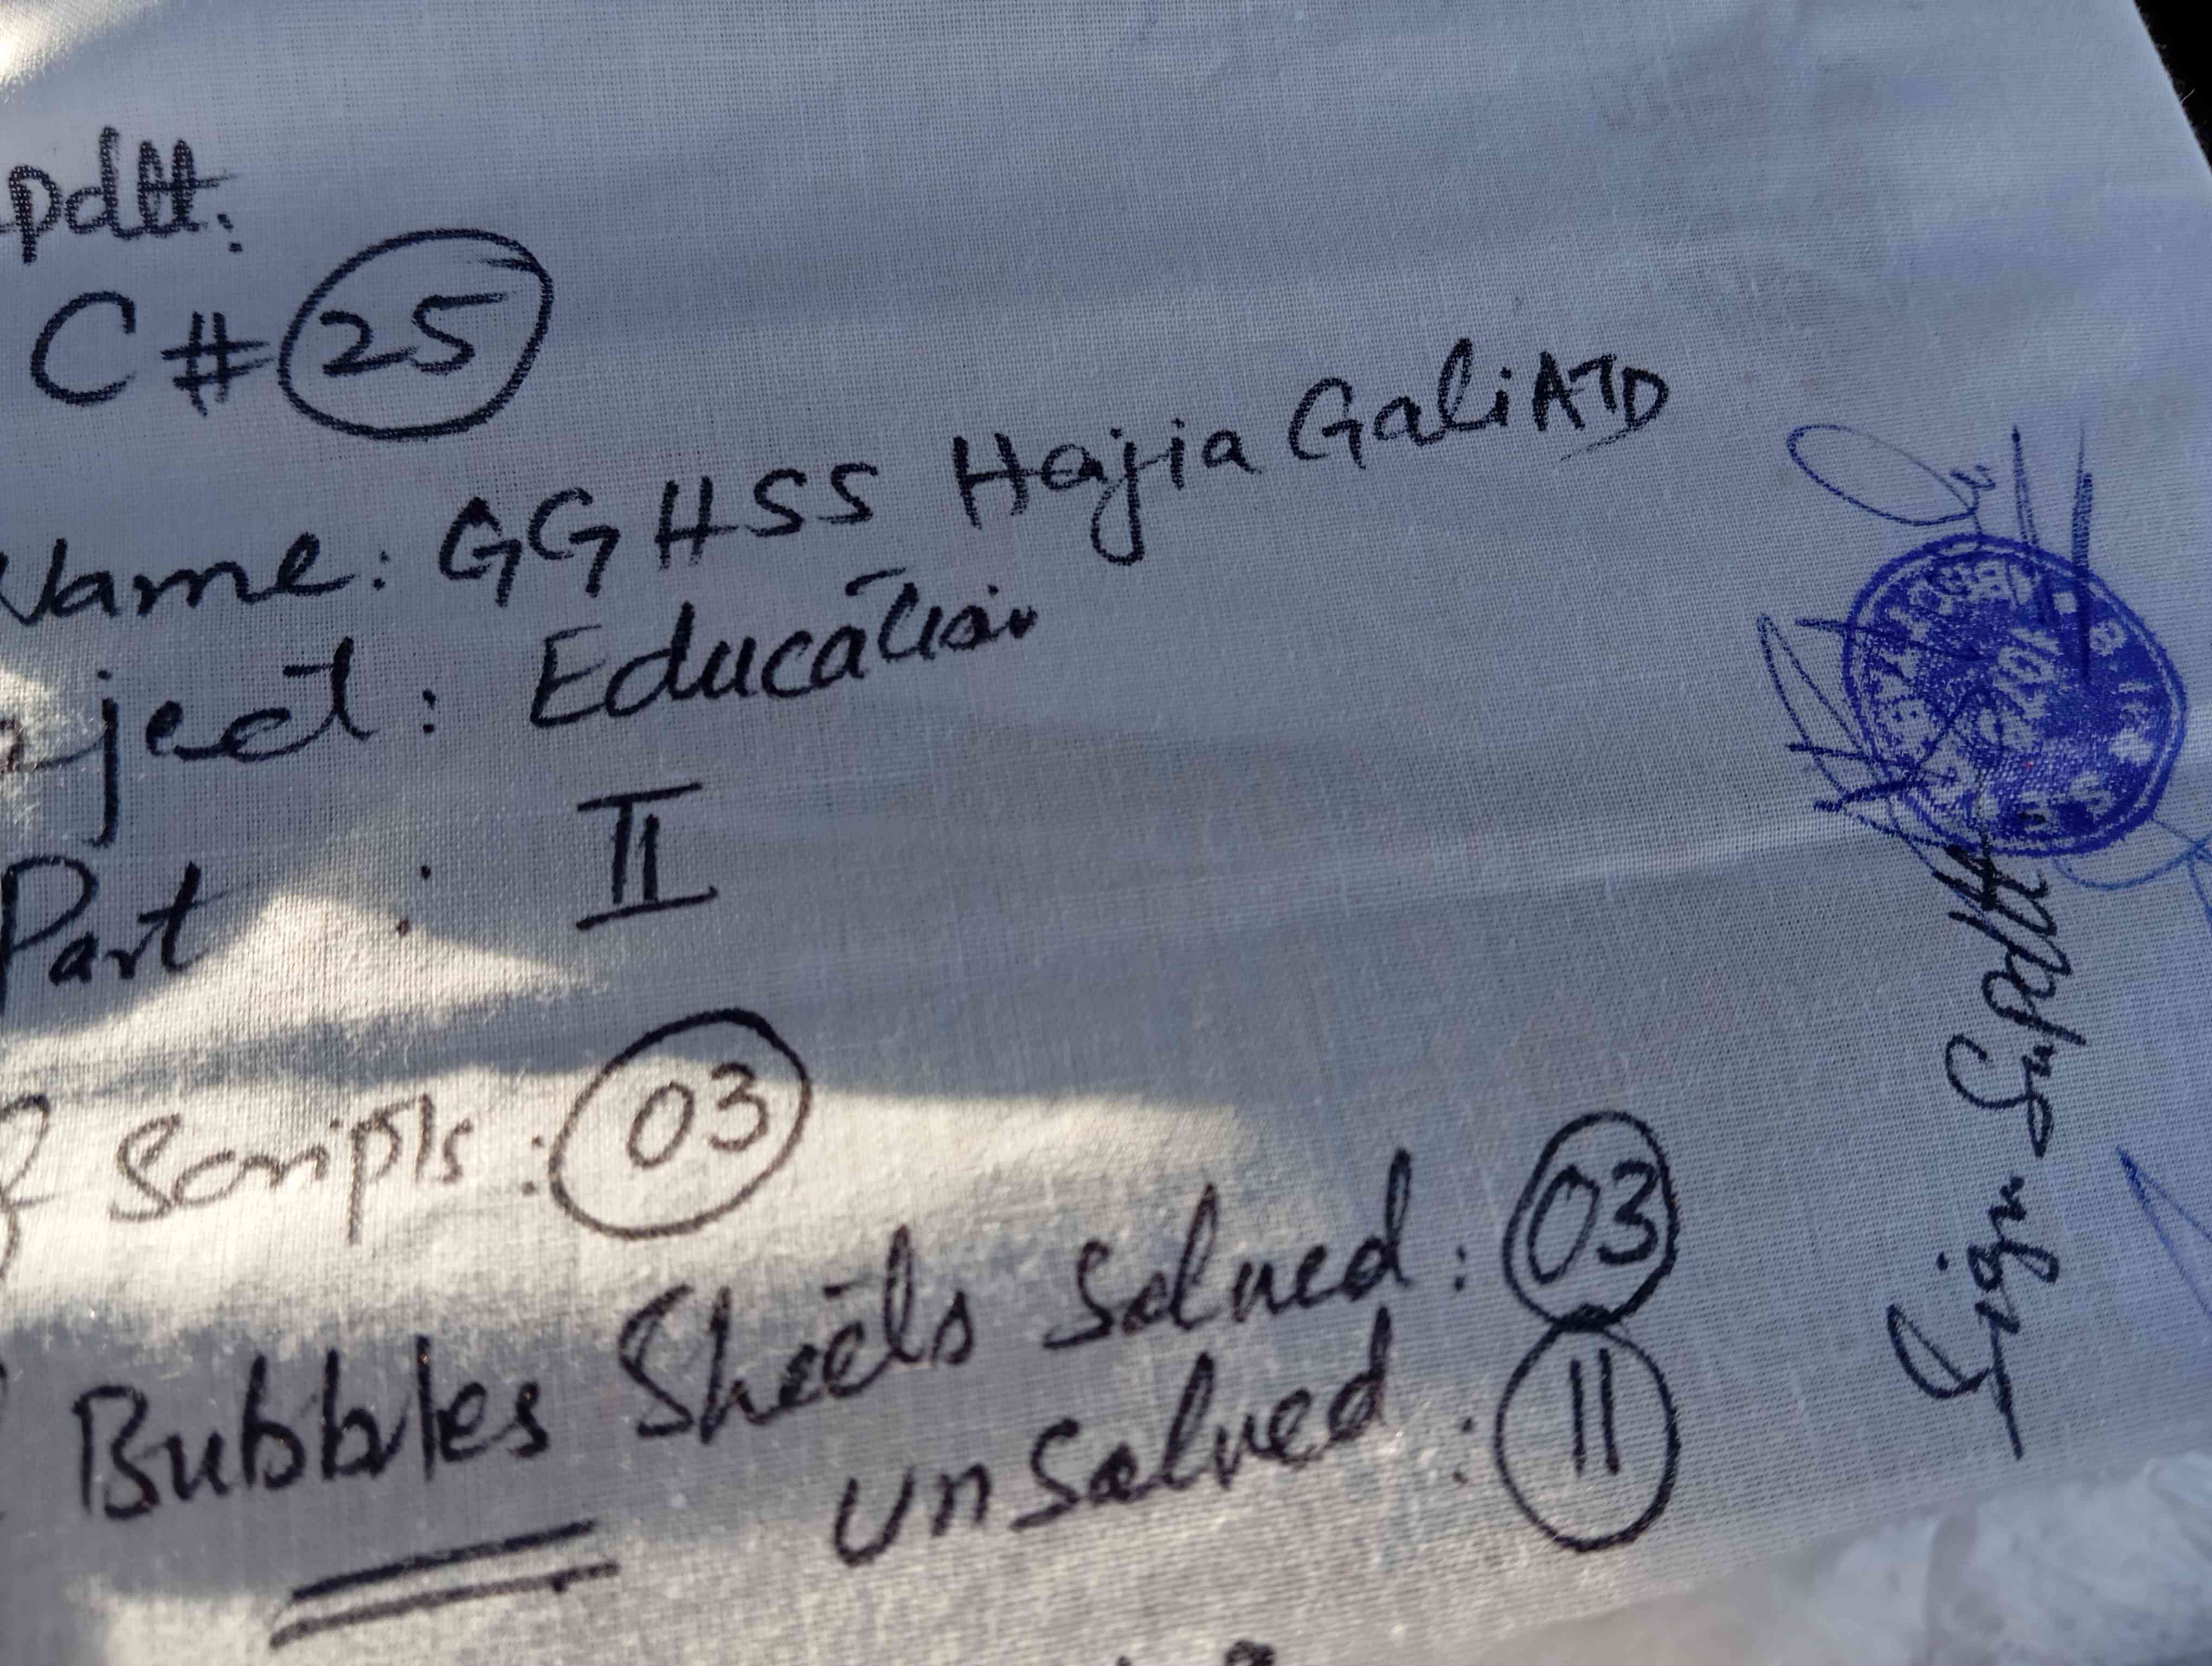 pdtt:
C # 25
Name: GGHSS Hajia Gali ATD
ject: Education
Part : II
Scripts : 03
Bubbles Sheets Solved : 03
unSolved : 11
Sign Supdtt